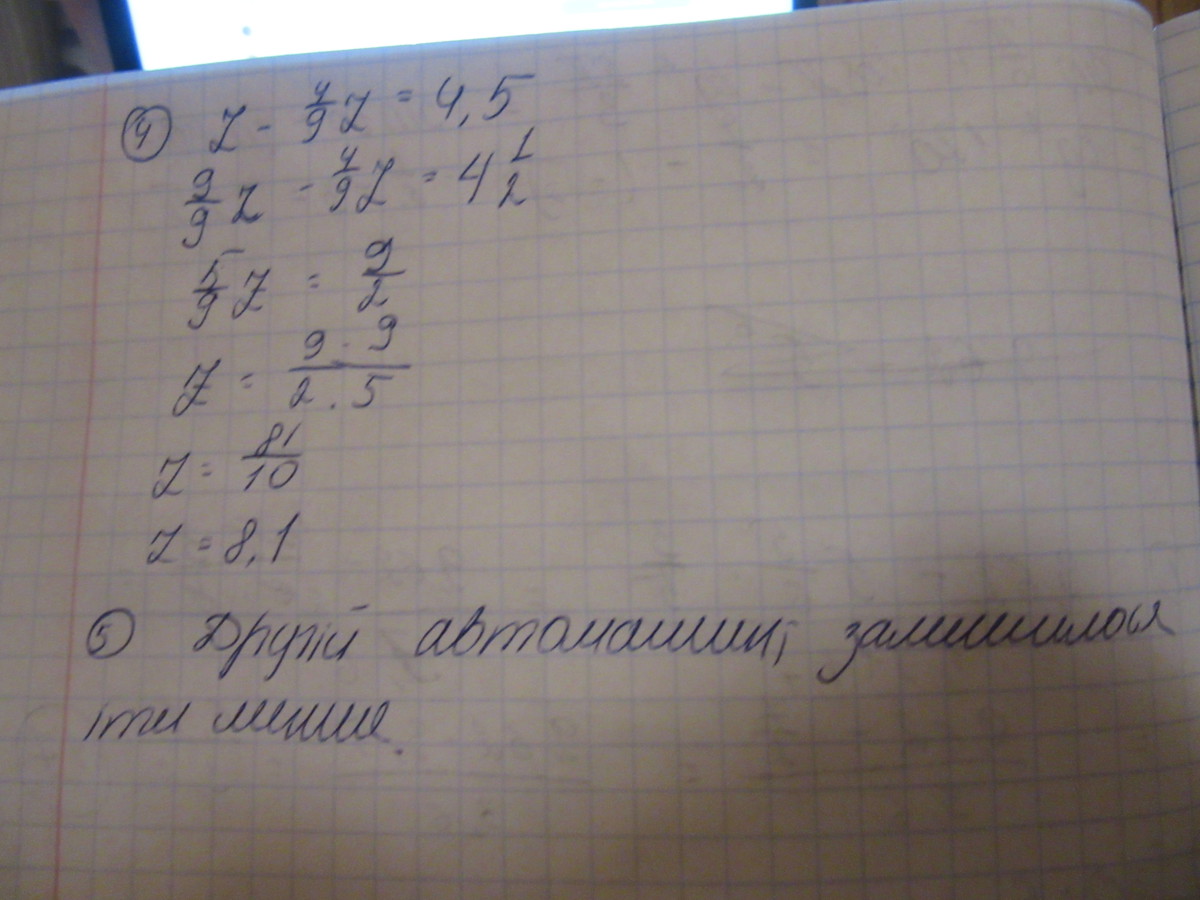 ④ z - 4/9 z = 4,5
9/9 z - 4/9 z = 4 1/2
5/9 z = 9/2
z = 9·9/2·5
z = 81/10
z = 8,1
⑤ Другій автомашині залишилося
їти менше.